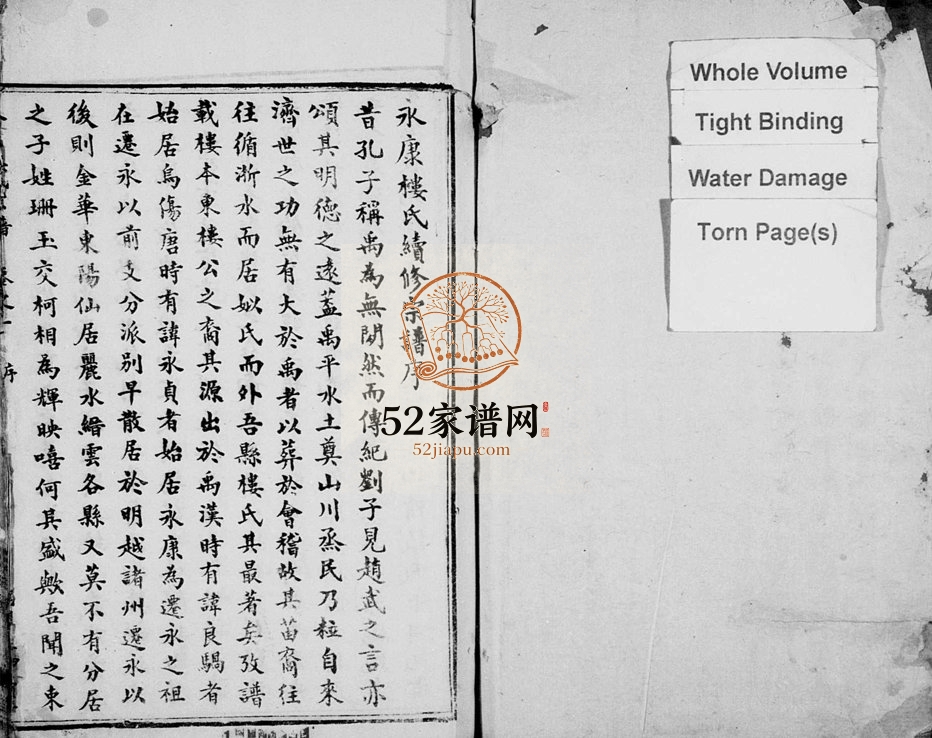 永康樓氏續修宗譜序
昔孔子稱禹為無閒然而傳紀劉子見趙武之言亦
頌其明德之遠蓋禹平水土奠山川烝民乃粒自來
濟世之功無有大於禹者以葬於會稽故其苗裔往
往循浙水而居姒氏而外吾縣樓氏其最著矣攷譜
載樓本東樓公之裔其源出於禹漢時有諱良騶者
始居烏傷唐時有諱永貞者始居永康為遷永之祖
在遷永以前支分派別早散居於明越諸州遷永以
後則金華東陽仙居麗水縉雲各縣又莫不有分居
之子姓珊玉交柯相為輝映嘻何其盛歟吾聞之東
譜
序
Whole Volume
Tight Binding
Water Damage
Torn Page(s)
52家谱网
52jiapu.com